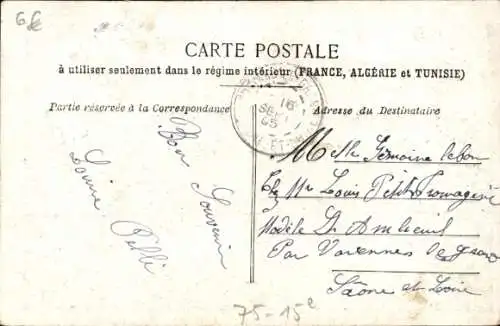 6€
CARTE POSTALE
à utiliser seulement dans le régime intérieur (FRANCE, ALGÉRIE et TUNISIE)
Partie réservée à la Correspondance
Adresse du Destinataire
16
SEPT
05
Bon Souvenir
Louise
Melle Germaine Lebon
Chz Mr Louis Petit Fromagerie
Modèle St Amlieuil
Par Varennes le grand
Saône et Loire
75-15e